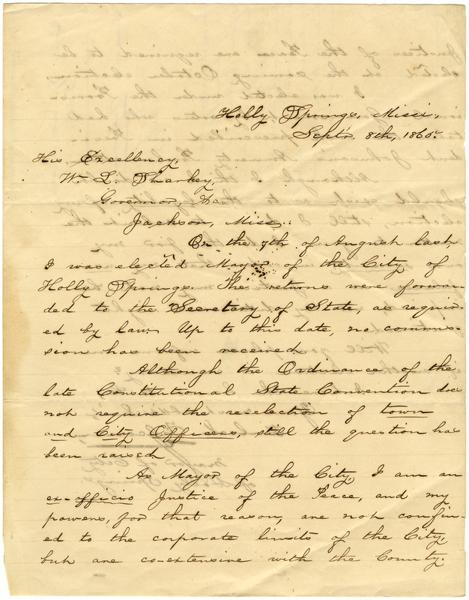 Holly Springs, Missi,
Sept. 8th, 1865.
His Excellency,
W. L. Sharkey,
Governor, &a.
Jackson, Miss.
On the 7th of August last
I was elected Mayor of the City of
Holly Springs. The returns were forwar-
ded to the Secretary of State, as requir-
ed by law. Up to this date, no commis-
sion has been received.
Although the Ordinance of the
late Constitutional State Convention doe
not require the reelection of town
and City Officers, still the question has
been raised.
As Mayor of the City, I am an
ex-officio Justice of the Peace, and my
powers, for that reason, are not confin-
ed to the corporate limits of the City,
but are co-extensive with the County.